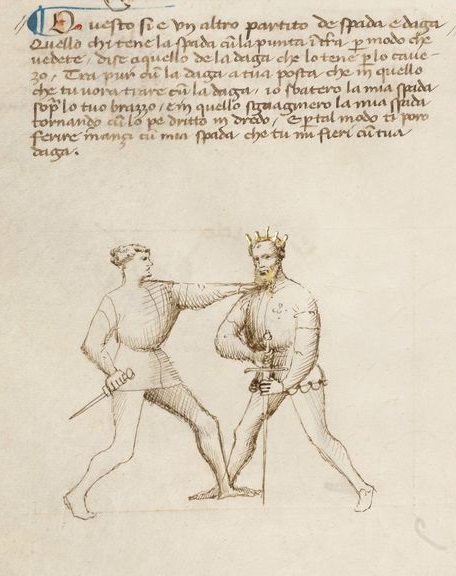 Questo si e un altro partito de spada e daga
Quello chi tene la spada cũ la punta ĩ tr̃a p̱ modo che
vedete, dise a quello de la daga che lo tene p̱ lo cave-
zo, Tra pur cũ la daga a tua posta che in quello
che tu vora trare cũ la daga, io sbatero la mia spada
sop̃ lo tuo brazzo, e in quello sguaginero la mia spada
tornando cũ lo pe dritto in dredo, E p̱ tal modo ti poro
ferire inanzi cũ mia spada che tu mi fieri cũ tua
daga.